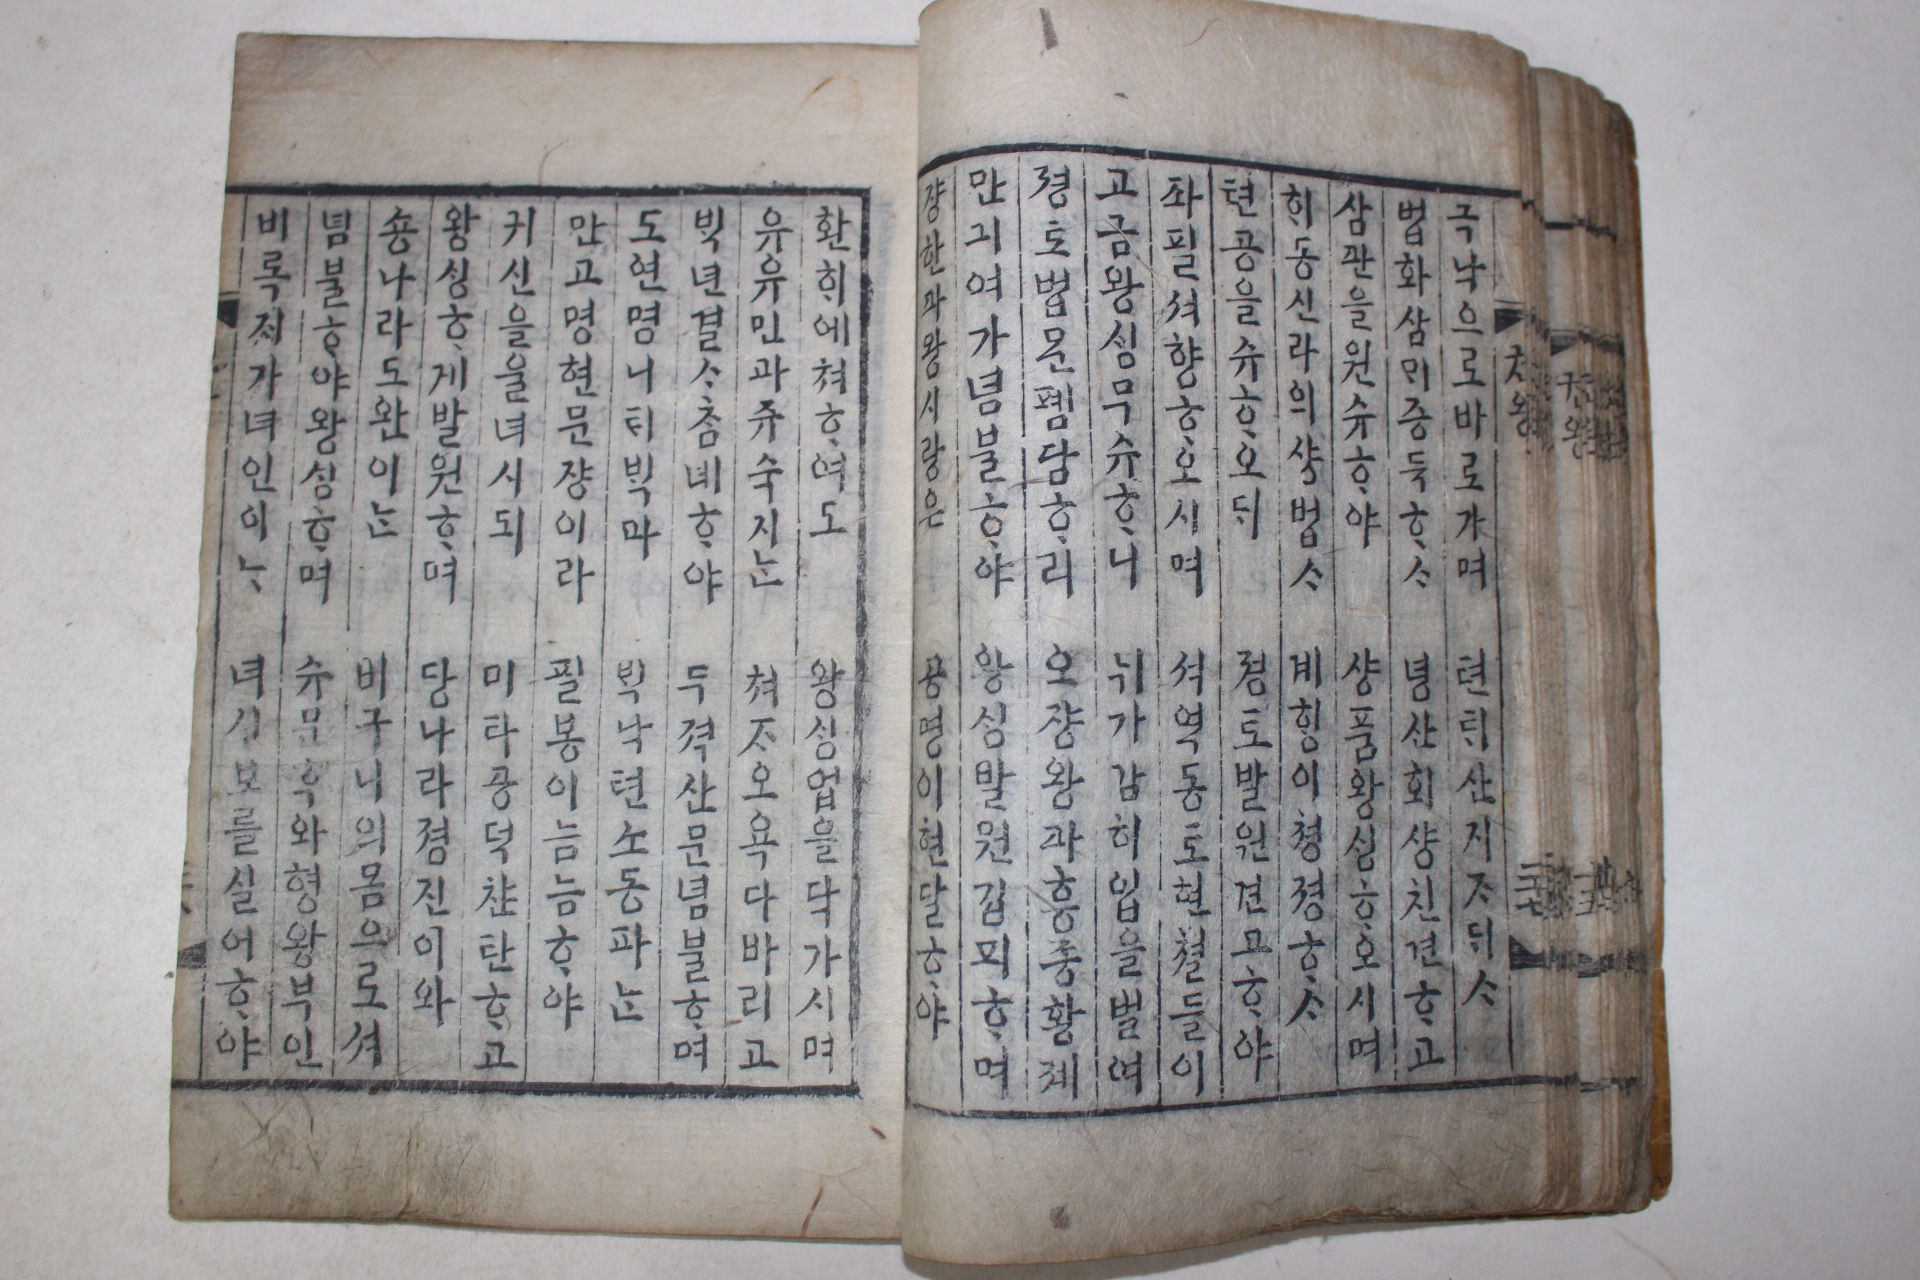 극낙으로바로가며 텬ᄐᆡ산지ᄌᆞᄃᆡᄉᆞ
법화삼ᄆᆡ증득ᄒᆞᄉᆞ 념산회샹친견ᄒᆞ고
삼관을원슈ᄒᆞ야 샹품왕ᄉᆡᆼᄒᆞ오시며
ᄒᆡ동신라의샹법ᄉᆞ 계ᄒᆡᆼ이쳥졍ᄒᆞᄉᆞ
텬공을슈ᄒᆞ오ᄃᆡ 졍토발원견고ᄒᆞ야
좌필셔향ᄒᆞ오시며 셕역동토현쳘들이
고금왕ᄉᆡᆼ무슈ᄒᆞ니 뉘가감히입을벌여
졍토법문폄담ᄒᆞ리 오쟝왕과흥종황졔
만긔여가념불ᄒᆞ야 왕ᄉᆡᆼ발원김픠ᄒᆞ며
쟝한과왕시랑은 공명이현달ᄒᆞ야
환ᄒᆡ에쳐ᄒᆞ여도 왕ᄉᆡᆼ업을닥가시며
유유민과쥬숙지ᄂᆞᆫ 쳐ᄌᆞ오욕다바리고
ᄇᆡᆨ년결ᄉᆞ참녜ᄒᆞ야 두젹산문념불ᄒᆞ며
도연명니ᄐᆡᄇᆡᆨ과 ᄇᆡᆨ낙텬소동파ᄂᆞᆫ
만고명현문쟝이라 필봉이늠늠ᄒᆞ야
귀신을울녀시되 미타공덕찬탄ᄒᆞ고
왕ᄉᆡᆼᄒᆞ게발원ᄒᆞ며 당나라졍진이와
숑나라도완이ᄂᆞᆫ 비구니의몸으로셔
념불ᄒᆞ야왕ᄉᆡᆼᄒᆞ며 슈문후와형왕부인
비록ᄌᆡ가녀인이ᄂᆞ 녀신보를실어ᄒᆞ야